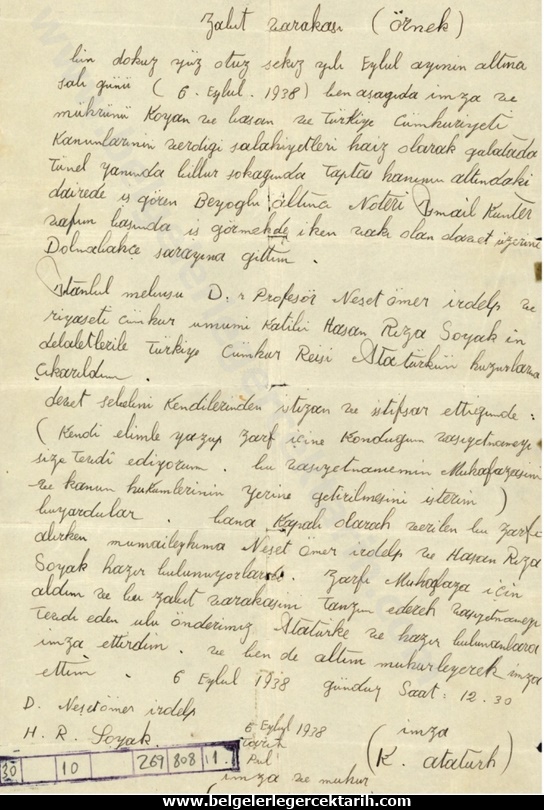 Zabıt varakası (örnek)
bin dokuz yüz otuz sekiz yılı Eylul ayının altına
salı günü ( 6. Eylul. 1938) ben aşagıda imza ve
mührünü Koyan ve basan ve Türkiye Cümhuriyeti
Kanunlarının verdigi salahiyetleri haiz olarak galatada
tünel yanında billur sokagında Taptas hanının altındaki
dairede iş gören Beyoglu altıncı Noteri Ismail Kunter
vazifem başında iş görmekde iken vaki olan davet üzerine
Dolmabahce sarayına gittim .
Istanbul mebusu D. r Profesör Neset ömer irdelp ve
riyaseti cümhur umumi Katibi Hasan Riza Soyak in
delaletlerile Türkiye Cümhur Reisi Atatürkün huzurlarına
çıkarıldım .
davet sebebini Kendilerinden istizan ve istifsar ettigimde :
( Kendi elimle yazup zarf içine Kondugum vasiyetnameyi
size tevdi ediyorum . bu vasiyetnamemin Muhafazasını
ve kanun hukumlerinin yerine getirilmesini isterim )
buyurdular . bana Kapalı olarak verilen bu zarfı
alırken mumaileyhıma Neşet ömer irdelp ve Hasan Rıza
Soyak hazır bulunuyorlardı. zarfı Muhafaza için
aldım ve bu zabıt varakasını tanzım ederek vasiyetnameyi
tevdi eden ulu önderimiz Atatürke ve hazır bulunanlara
imza ettirdim . ve ben de altını muhurleyerek imza
ettim . 6 Eylul 1938 günduz Saat : 12.30
D. Neşet ömer irdelp
H. R. Soyak
6 Eylul 1938
Pul
imza
(K. ataturk)
30 10 269 808 11.
imza ve muhur
www.belgelerlegercektarih.com